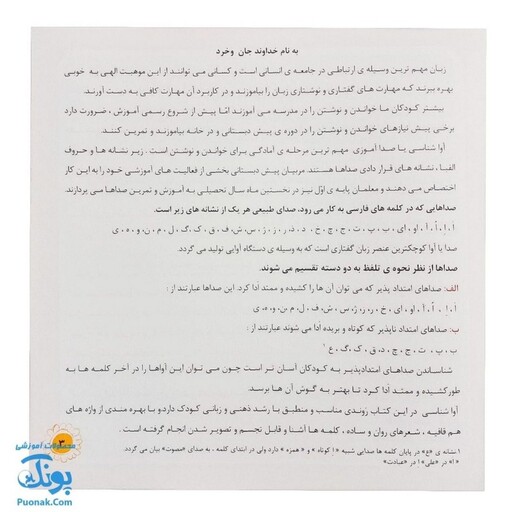 به نام خداوند جان وخرد
زبان مهم ترین وسیله ی ارتباطی در جامعه ی انسانی است و کسانی می توانند از این موهبت الهی به خوبی
بهره ببرند که مهارت های گفتاری و نوشتاری زبان را بیاموزند و در کاربرد آن مهارت کافی به دست آورند.
بیشتر کودکان ما خواندن و نوشتن را در مدرسه می آموزند امّا پیش از شروع رسمی آموزش، ضرورت دارد
برخی پیش نیازهای خواندن و نوشتن را در دوره ی پیش دبستانی و در خانه بیاموزند و تمرین کنند.
آوا شناسی یا صدا آموزی مهم ترین مرحله ی آمادگی برای خواندن و نوشتن است. زیر نشانه ها و حروف
الفبا، نشانه های قرار دادی صداها هستند. مربیان پیش دبستانی بخشی از فعالیت های آموزشی خود را به این کار
اختصاص می دهند و معلمان پایه ی اوّل نیز در نخستین ماه سال تحصیلی به آموزش و تمرین صداها می پردازند.
صداهایی که در کلمه های فارسی به کار می رود، صدای طبیعی هر یک از نشانه های زیر است.
صدا یا آوا کوچکترین عنصر زبان گفتاری است که به وسیله ی دستگاه آوایی تولید می گردد.
صداها از نظر نحوه ی تلفظ به دو دسته تقسیم می شوند.
الف: صداهای امتداد پذیر که می توان آن ها را کشیده و ممتد ادا کرد. این صداها عبارتند از:
ب: صداهای امتداد ناپذیر که کوتاه و بریده ادا می شوند عبارتند از:
ب، پ، ت، ج، چ، د، ق، ک، گ، ع ¹
شناساندن صداهای امتدادپذیر به کودکان آسان تر است چون می توان این آواها را در آخر کلمه ها به
طور کشیده و ممتد ادا کرد تا بهتر به گوش آن ها برسد.
آوا شناسی در این کتاب روندی مناسب و منطبق با رشد ذهنی و زبانی کودک دارد و با بهره مندی از واژه های
هم قافیه، شعرهای روان و ساده، کلمه ها آشنا و قابل تجسم و تصویر شدن انجام گرفته است.
۱ نشانه ی «ع» در پایان کلمه ها صدایی شبیه «اِ کوتاه» و «همزه» دارد ولی در ابتدای کلمه، به صدای «مصوت» بیان می گردد.
«اَ» در «علی» اِ در «عبادت»
۳
محصولات آموزشی
پونک
Puonak.Com